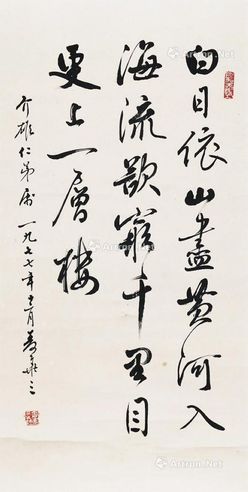 白日依山盡黄河入
海流欲窮千里目
更上一層樓
介雄仁弟属一九七七年十二月